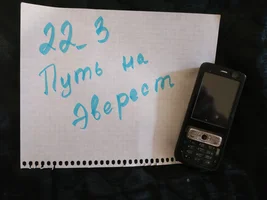 22_3
Путь на
Эверест